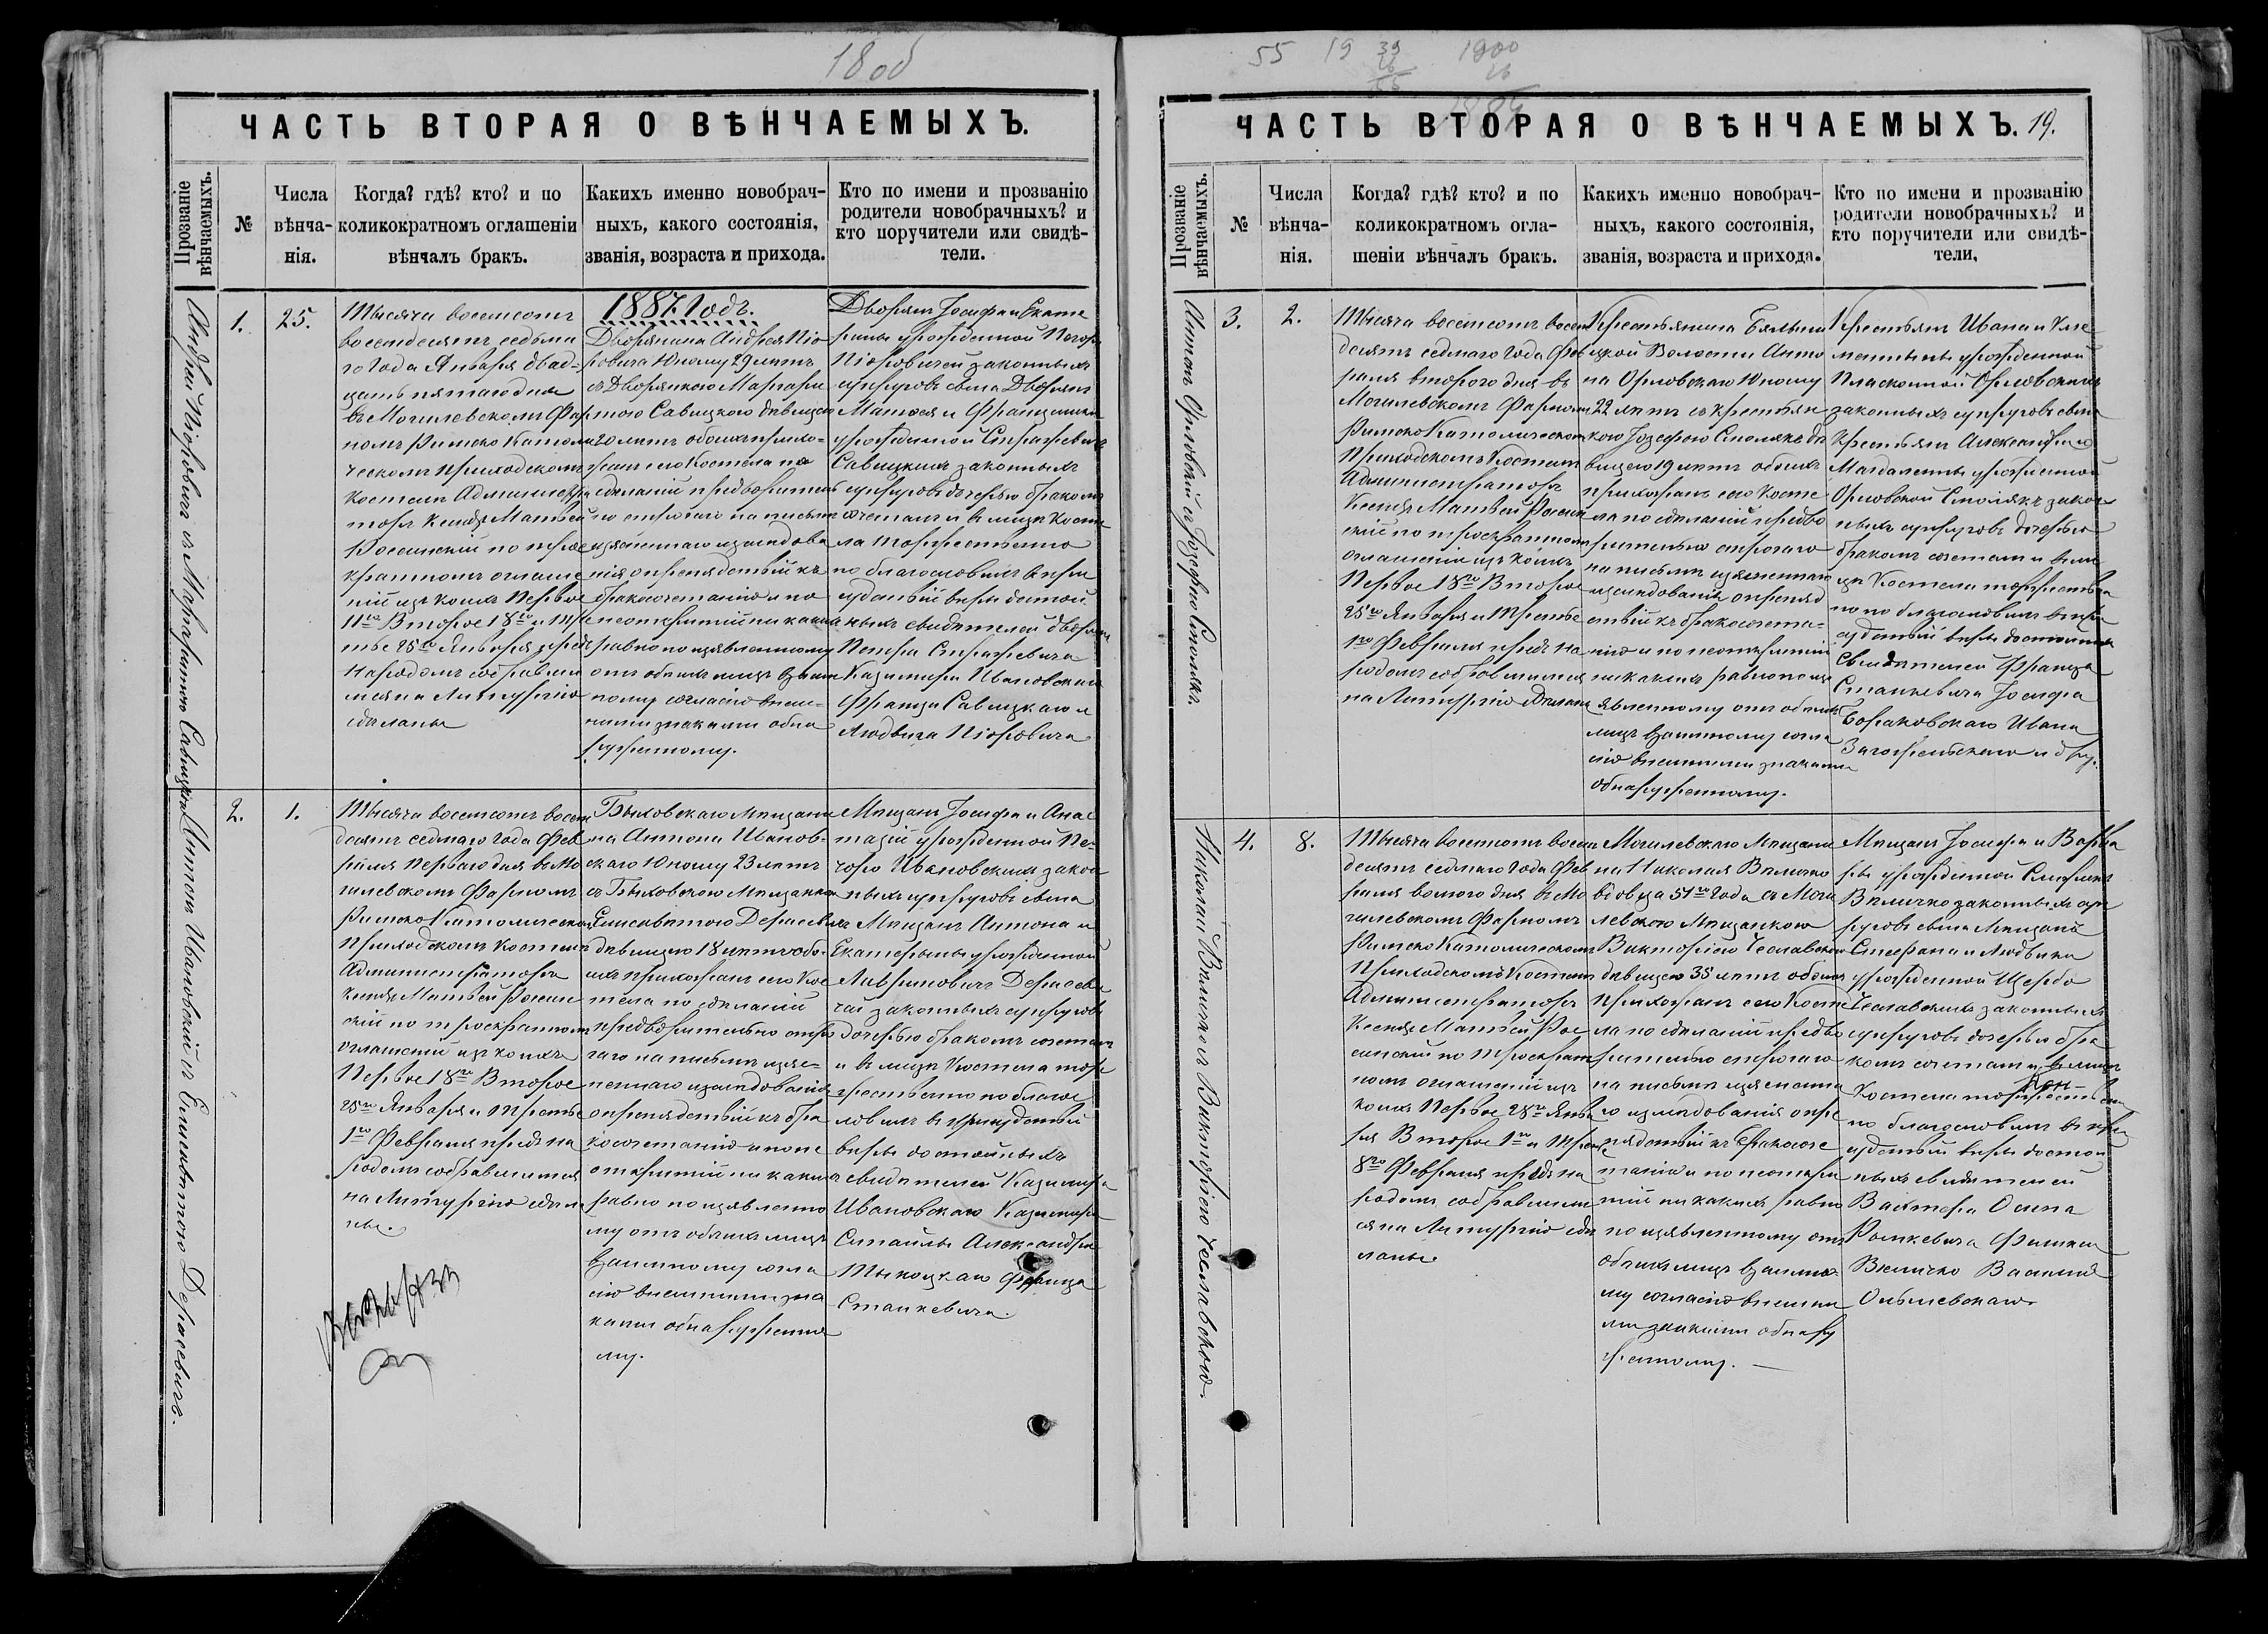 18об
ЧАСТЬ ВТОРАЯ О ВѢНЧАЕМЫХЪ.
Прозваніе
вѣнчаемыхъ.
№
Числа
вѣнча-
нія.
Когда? гдѣ? кто? и по
коликократномъ оглашеніи
вѣнчалъ бракъ.
Какихъ именно новобрач-
ныхъ, какого состоянія,
званія, возраста и прихода.
Кто по имени и прозванію
родители новобрачныхъ? и
кто поручители или свидѣ-
тели.
Андрей Піоровичъ съ Маргаритою Савицкою
1.
25.
Тысяча восемсотъ
восемдесятъ седьма
го Года Января двад-
цать пятаго дня
въ Могилевскомъ Фар
номъ Римско Католи
ческомъ приходскомъ
Костелѣ Администра
торъ Ксендзъ Матвей
по трое
кратномъ оглаше
ніи изъ коихъ Первое
11го Второе 18го и Тре
тье 25го Января предъ
Народомъ собравши
мся на Литургію
сдѣланы
1887 Годъ.
Дворянина Андрея Піо
ровича Юношу 29 лѣтъ
съ Дворянкою Маргари
тою Савицкою дѣвицею
20 лѣтъ обоихъ прихо-
жанъ сего Костела по
сдѣланіи предваритель
но строгаго на письмѣ
изъясненнаго изслѣдова
нія о препятствіи къ
бракосочетанію и по
неоткрытіи никакихъ
равно по изъявленному
отъ обоихъ лицъ взаим
ному согласію внеш-
ними знаками обна
руженному.
Дворянъ Іосифа и Екате
рины урожденной
Піоровичей законныхъ
супруговъ сына Дворянъ
Матвея и Францишки
урожденной Стражевичъ
Савицкихъ законныхъ
супруговъ дочерью бракомъ
сочеталъ и въ лицѣ Косте
ла торжественно
по благословилъ въ при
сутствіи веры достой
ныхъ свидѣтелей Дворянъ
Петра Стражевича
Казимира Ивановскаго
Франца Савицкаго и
Людвига Піоровича
Антонъ Ивановскій съ Елисаветою Дерасевичъ.
2.
1.
Тысяча восемсотъ восем
десятъ седмаго Года Фев
раля Перваго дня въ Мо
гилевскомъ Фарномъ
Римско Католическомъ
Приходскомъ Костелѣ
Администраторъ
Ксендзъ Матвей
скій по троекратномъ
оглашеніи изъ коихъ
Первое 18го Второе
25го Января и Третье
1го Февраля предъ на
родомъ собравшимся
на Литургію сдѣла
ны.
Быховскаго Мѣщани
на Антона Иванов-
скаго Юношу 23 лѣтъ
съ Быховскою Мѣщанкою
Елисаветою Дерасевичъ
дѣвицею 18 лѣтъ обо-
ихъ прихожанъ сего Кос
тела по сдѣланіи
предварительно стро
гаго на письмѣ изъяс-
неннаго изслѣдованія
о препятствіи къ бра
косочетанію и по не
открытіи никакихъ
равно по изъявленно
му отъ обоихъ лицъ
взаимному согла
сію внешними зна
ками обнаруженно
му.
Мѣщанъ Іосифа и Анас
тазіи урожденной Пе-
чоро Ивановскихъ закон
ныхъ супруговъ сына
Мѣщанъ Антона и
Екатерины урожденной
Лавриновичъ Дерасеви
чей законныхъ супруговъ
дочерью бракомъ сочеталъ
и въ лицѣ Костела торж
жественно по благос
ловилъ въ присутствіи
веры достойныхъ
свидѣтелей Казимира
Ивановскаго Казимира
Александра
Франца
Станкевича.
55 19 39 1900
16 16
55 1884
ЧАСТЬ ВТОРАЯ О ВѢНЧАЕМЫХЪ. 19.
Прозваніе
вѣнчаемыхъ.
№
Числа
вѣнча-
нія.
Когда? гдѣ? кто? и по
коликократномъ огла-
шеніи вѣнчалъ бракъ.
Какихъ именно новобрач-
ныхъ, какого состоянія,
званія, возраста и прихода.
Кто по имени и прозванію
родители новобрачныхъ? и
кто поручители или свидѣ-
тели.
Антонъ Орловскій съ Іозефою Смолякъ.
3.
2.
Тысяча восемсотъ восем
десятъ седмаго Года Фев
раля втораго дня въ
Могилевскомъ Фарномъ
Римско Католическомъ
Приходскомъ Костелѣ
Администраторъ
Ксендзъ Матвей
скій по троекратномъ
оглашеніи изъ коихъ
Первое 18го Второе
25го Января и Третье
1го Февраля предъ на
родомъ собравшимся
на Литургію сдѣланы
Крестьянина
Волости Анто
на Орловскаго Юношу
22 лѣтъ съ крестьян
кою Іозефою Смолякъ дѣ
вицею 19 лѣтъ обоихъ
прихожанъ сего Косте
ла по сдѣланіи предва
рительно строгаго
на письмѣ изъясненнаго
изслѣдованія о препят
ствіи къ бракосочета-
нію и по неоткрытіи
никакихъ равно по изъ
явленному отъ обоихъ
лицъ взаимному согла
сію внешними знаками
обнаруженному.
Крестьянъ Ивана и Кле
ментыны урожденной
Орловскихъ
законныхъ супруговъ сына
Крестьянъ Александра и
Магдалены урожденной
Орловской Смолякъ закон
ныхъ супруговъ дочерью
бракомъ сочеталъ и въ ли
цѣ Костела торжествен
но по благословилъ въ при
сутствіи веры достойныхъ
Свидѣтелей Франца
Станкевича Іосифа
Бораковскаго Ивана
и друг.
Николай Величко съ Викторіею Чеславскою.
4.
8.
Тысяча восемсотъ восем
десятъ седмаго Года Фев
раля восмого дня въ Мо
гилевскомъ Фарномъ
Римско Католическомъ
Приходскомъ Костелѣ
Администраторъ
Ксендзъ Матвей
по троекрат
номъ оглашеніи изъ
коихъ Первое 28го Янва
ря Второе 1го и Третье
8го Февраля предъ на
родомъ собравшим
ся на Литургію сдѣ
ланы.
Могилевскаго Мѣщани
на Николая Величко
вдовца 51го Года съ Моги
левскою Мѣщанкою
Викторіею Чеславскою
дѣвицею 35 лѣтъ обоихъ
прихожанъ сего Косте
ла по сдѣланіи предва
рительно строгаго
на письмѣ изъясненна
го изслѣдованія о пре
пятствіи къ бракосоче
танію и по неоткры
тіи никакихъ равно
по изъявленному отъ
обоихъ лицъ взаимно
му согласію внешни
ми знаками обнару
женному.
Мѣщанъ Іосифа и Варва
ры урожденной
Величко законныхъ суп
руговъ сына Мѣщанъ
Стефана и Людвики
урожденной Щербо
Чеславскихъ законныхъ
супруговъ дочерью бра
комъ сочеталъ и въ лицѣ
Костела торжествен
но благословилъ въ при
сутствіи веры достой
ныхъ свидѣтелей
Осипа
Величко Василія